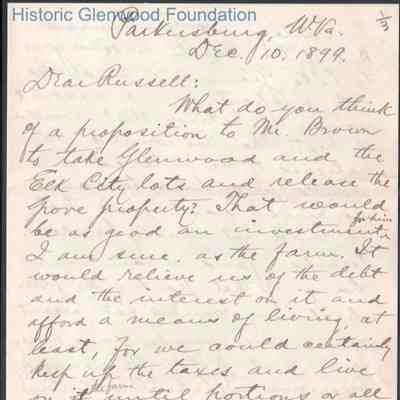 Historic Glenwood Foundation
1/3
Parkersburg, W.Va.
Dec. 10. 1899.
Dear Russell:
What do you think
of a proposition to Mr. Brown
to take Glenwood and the
Elk City lots and release the
Grove property? That would
be as good an investment for him
I am sure, as the farm. It
would relieve us of the debt
and the interest on it and
afford a means of living, at
least, for we could certainly
keep up the taxes and live
on it the farm until portions or all